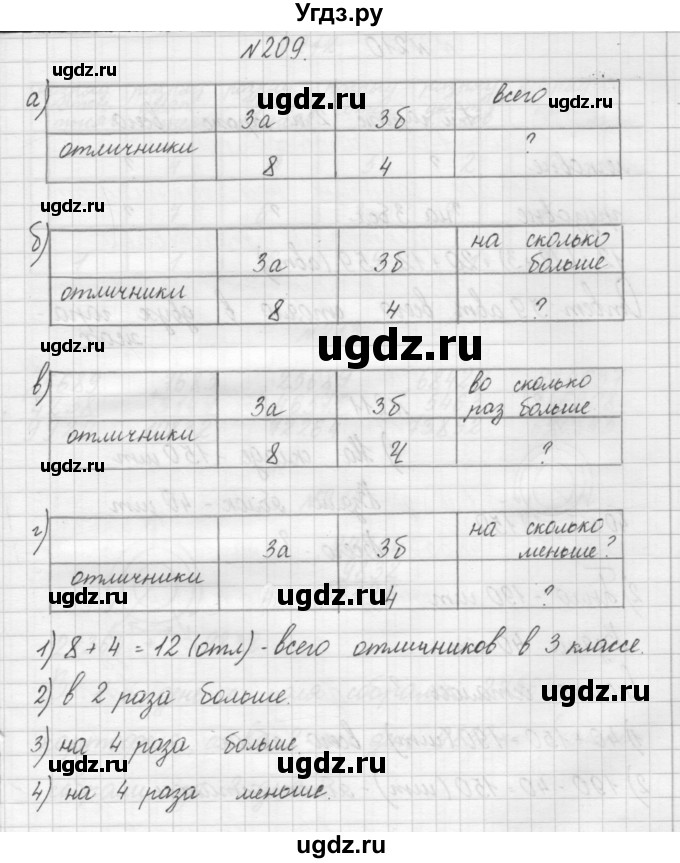 Угдз.ру
№209.
ugdz.ru
а) 3а 3б всего
ugdz.ru ugdz.ru
отличники 8 4 ?
ugdz.ru ugdz.ru
ugdz.ru
б) 3а 3б на сколько больше
отличники 8 4 ?
ugdz.ru ugdz.ru
в) 3а 3б во сколько раз больше
отличники 8 4 ?
ugdz.ru ugdz.ru
г) 3а 3б на сколько меньше?
отличники 4 ?
ugdz.ru ugdz.ru ugdz.ru
1) 8 + 4 = 12 (отл) - всего отличников в 3 классе.
2) в 2 раза больше.
ugdz.ru ugdz.ru
3) на 4 раза больше.
ugdz.ru ugdz.ru ugdz.ru
4) на 4 раза меньше.
ugdz.ru